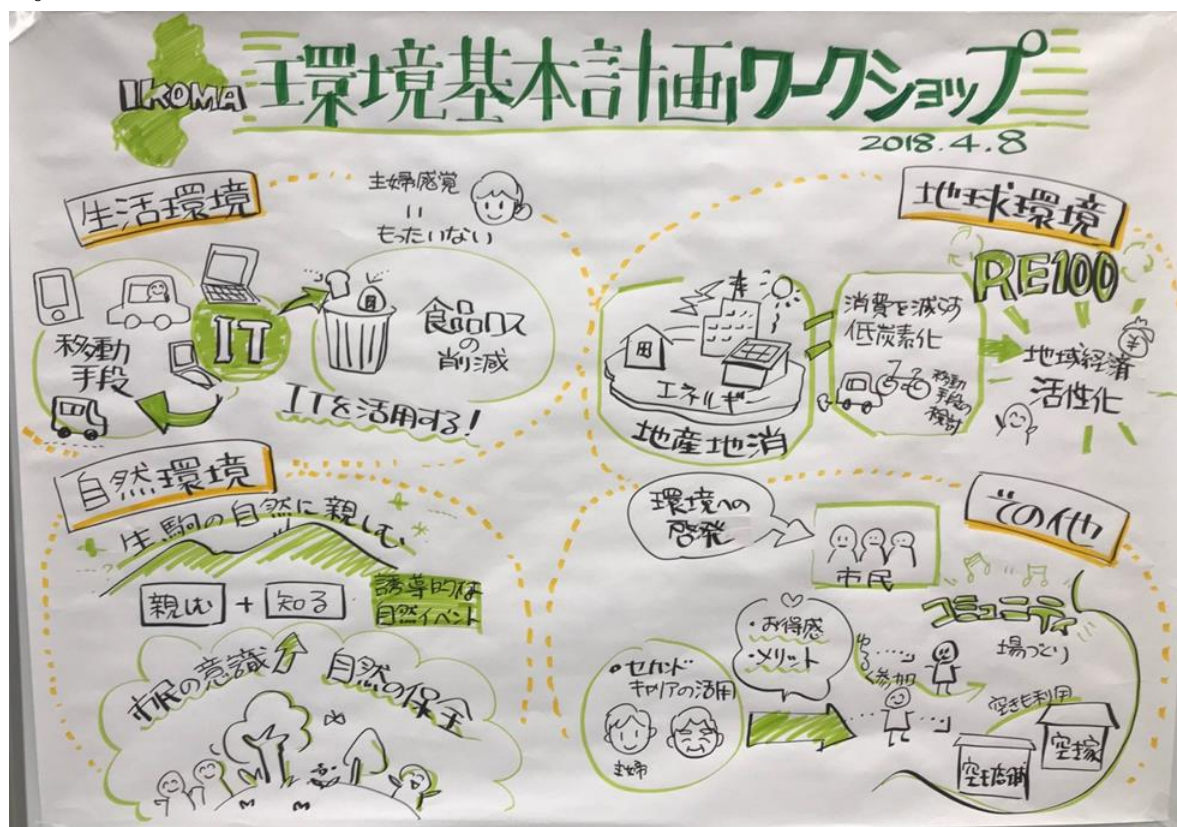 IKOMA
環境基本計画ワークショップ
2018.4.8
生活環境
主婦感覚
=
もったいない
移動
手段
IT
食品ロス
の
削減
ITを活用する!
地球環境
RE100
エネルギー
地産地消
消費を減らす
低炭素化
移動
手段の
検討
地域経済
活性化
¥
自然環境
生駒の自然に親しむ
親しむ + 知る
誘導的な
自然イベント
市民の意識
自然の保全
その他
環境への
啓発
市民
コミュニティ
場づくり
・お得感
・メリット
ゆるく参加
・セカンド
キャリアの活用
主婦
空きを利用
空き店舗
空き家